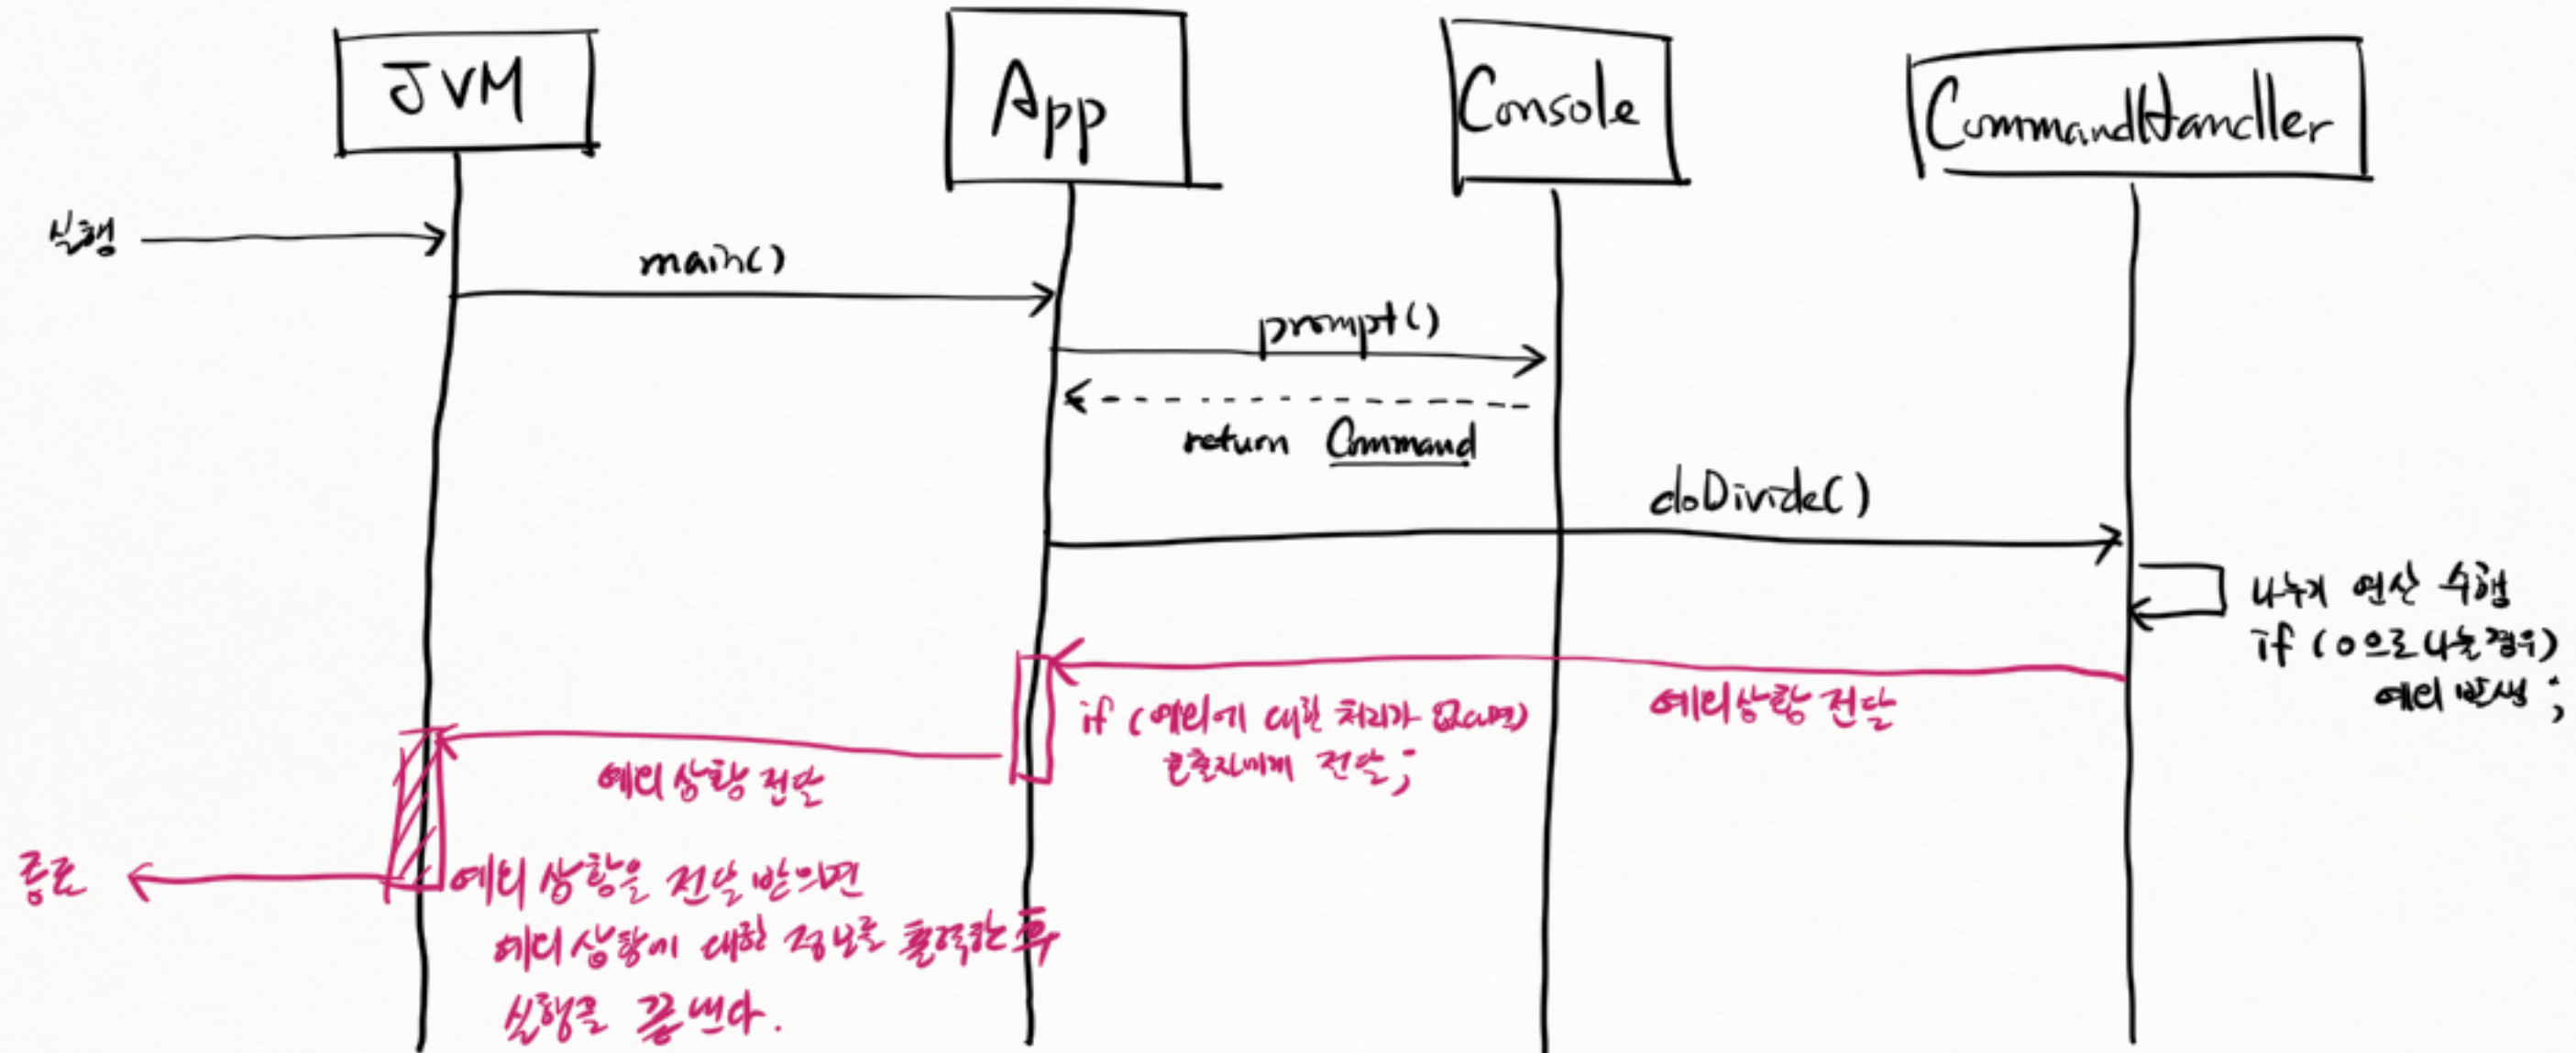 JVM
App
Console
CommandHandler
실행
main()
prompt()
return Command
doDivide()
나누기 연산 수행
if (0으로 나눌 경우)
예외 발생;
예외상황 전달
if (예외에 대한 처리가 없으면)
호출자에게 전달;
예외 상황 전달
종료
예외 상황을 전달 받으면
예외 상황에 대한 정보를 출력한 후
실행을 끝낸다.